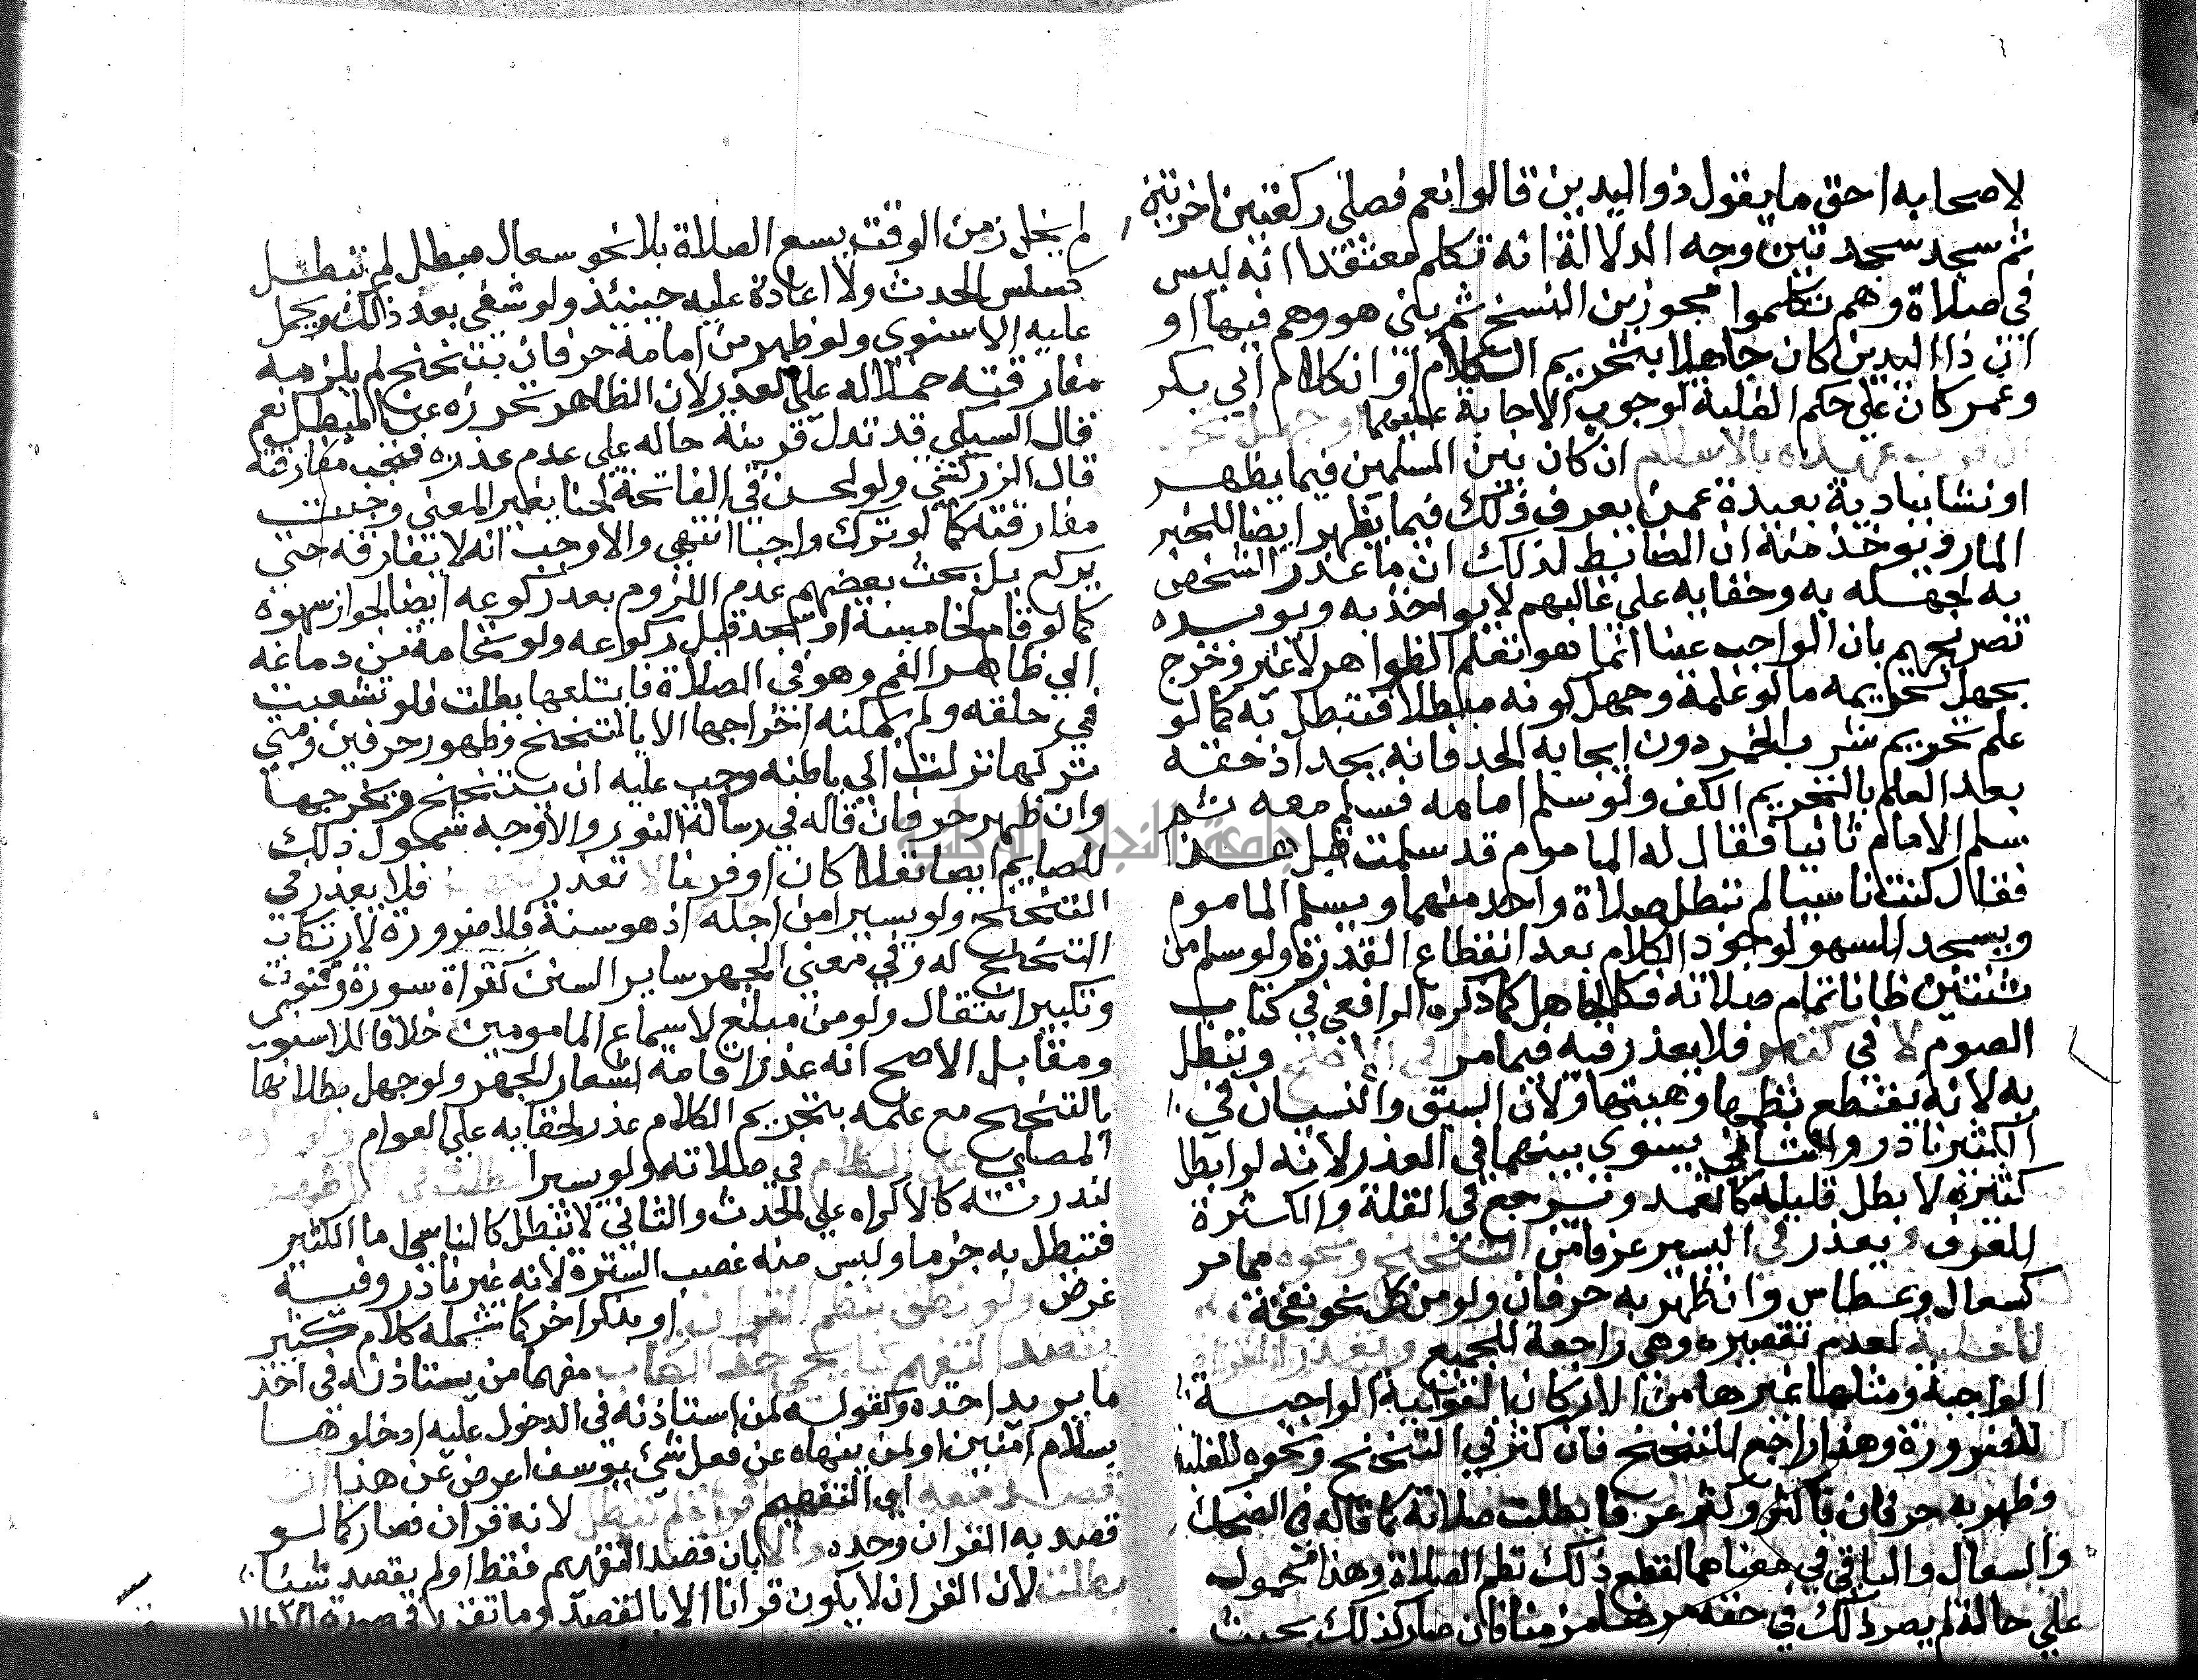 لاصحابه احق ما يقول ذو اليدين قالوا نعم فصلى ركعتين اخرتين
ثم سجد سجدتين وجه الدلالة انه تكلم معتقدا انه ليس
في صلاة وهم تكلموا مجوزين النسخ ثم بنى هو وهم فيها او
ان ذا اليدين كان جاهلا بتحريم الكلام او ان كلام ابي بكر
وعمر كان على حكم الغلبة لوجوب الاجابة عليهما او جهل تحر
ان قرب عهده بالاسلام ان كان بين المسلمين فيما يظهر
او نشا ببادية بعيدة عمن يعرف ذلك فيما يظهر ايضا للخبر
المار ويوخذ منه ان الضابط لذلك ان ما عذر الشخص
به لجهله به وخفايه على غالبهم لا يواخذ به ويويده
تصريحهم بان الواجب عينا انما هو تعلم الظواهر لا غير وخرج
بجهل تحريمه ما لو علمه وجهل كونه مبطلا فتبطل به كما لو
علم تحريم شرب الخمر دون ايجابه الحد فانه يحد اذ حقه
بعد العلم بالتحريم الكف ولو سلم امامه فسلم معه ثم
سلم الامام ثانيا فقال له الماموم قد سلمت قبل هذا
فقال كنت ناسيا لم تبطل صلاة واحد منهما ويسلم الماموم
ويسجد للسهو لوجود الكلام بعد انقطاع القدوة ولو سلم من
ثنتين ظانا تمام صلاته فكالجاهل كما ذكره الرافعي في كتاب
الصوم لا في كثيره فلا يعذر فيه فيما مر في الاصح وتبطل
به لانه يقطع نظمها وهيتها ولان السبق والنسيان في
الكثير نادر والثاني يسوى بينهما في العذر لانه لو ابطل
كثيره لابطل قليله كالعمد ويرجع في القلة والكثرة
للعرف ويعذر في اليسير عرفا من التنحنح ونحوه مما مر
كسعال وعطاس وان ظهر به حرفان ولو من كل نحو نفخة
للغلبة لعدم تقصيره وهي راجعة للجميع وتعذر القراة
الواجبة ومثلها غيرها من الاركان القولية الواجبة
للضرورة وهذا راجع للتنحنح فان كثر في التنحنح ونحوه للغلبة
وظهر به حرفان فاكثر وكثر عرفا بطلت صلاته كما قاله في الضحك
والسعال والباقي في معناهما لقطع ذلك نظم الصلاة وهذا محمول
على حالة لم يصر ذلك في حقه مرضا مزمنا فان صار كذلك بحيث
لم يخل زمن الوقت يسع الصلاة بلا نحو سعال مبطل لم تبطل
كسلس الحدث ولا اعادة عليه حينئذ ولو شفي بعد ذلك ويحمل
عليه الاسنوي ولو ظهر من امامه حرفان بتنحنح لم يلزمه
مفارقته حملا له على العذر لان الظاهر تحرزه عن المبطل نعم
قال السبكي قد تدل قرينة حاله على عدم عذره فتجب مفارقته
قال الزركشي ولو لحن في الفاتحة لحنا يغير المعنى وجبت
مفارقته كما لو ترك واجبا انتهى والاوجب انه لا يفارقه حتى
يركع بل بحث بعضهم عدم اللزوم بعد ركوعه ايضا لجواز سهوه
كما لو قام لخامسة او سجد قبل ركوعه ولو نخامة من دماغه
الى ظاهر الفم وهو في الصلاة فابتلعها بطلت فلو تشعبت
في حلقه ولم يمكنه اخراجها الا بالتنحنح وظهور حرفين ومتى
تركها نزلت الى باطنه وجب عليه ان يتنحنح ويخرجها
وان ظهر حرفان قاله في رسالة النور والاوجه شمول ذلك
للصايم ايضا نفلا كان او فرضا لا تعذر فلا يعذر في
التنحنح ولو يسيرا من اجله اذ هو سنة فلا ضرورة لارتكاب
التنحنح له وفي معنى الجهر ساير السنن كقراة سورة وقنوت
وتكبير انتقال ولو من مبلغ لاسماع المامومين خلافا للاسنوي
ومقابل الاصح انه عذر اقامة لشعار الجهر ولو جهل بطلانها
بالتنحنح مع علمه بتحريم الكلام عذر لخفايه على العوام
المصلي على الكلام في صلاته ولو يسيرا بطلت في الاظهر
لندرته كالاكراه على الحدث والثاني لا تبطل كالناسي اما الكثير
فتبطل به جزما وليس منه غصب السترة لانه غير نادر وفيه
غرض ولو نطق بنظم القران او بذكر اخر كما شمله كلام كثير
بقصد التفهيم كيا يحيى خذ الكتاب مفهما من يستاذنه في اخذ
ما يريد اخذه وكقوله لمن استاذنه في الدخول عليه ادخلوها
بسلام امنين او لمن ينهاه عن فعل شي يوسف اعرض عن هذا ان
قصد معه اي التفهيم قراة لم تبطل لانه قران فصار كما لو
قصد به القران وحده والا بان قصد التفهيم فقط او لم يقصد شيئا
بطلت لان القران لا يكون قرانا الا بالقصد وما تقرر في صورة الاطلا